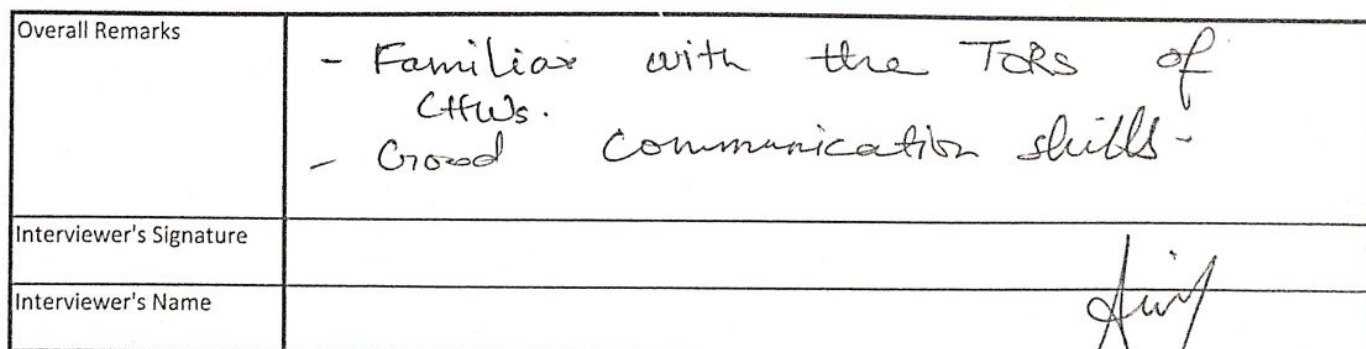 Overall Remarks
- Familiar with the TORs of
CHWs.
- Good Communication skills-
Interviewer's Signature
Interviewer's Name